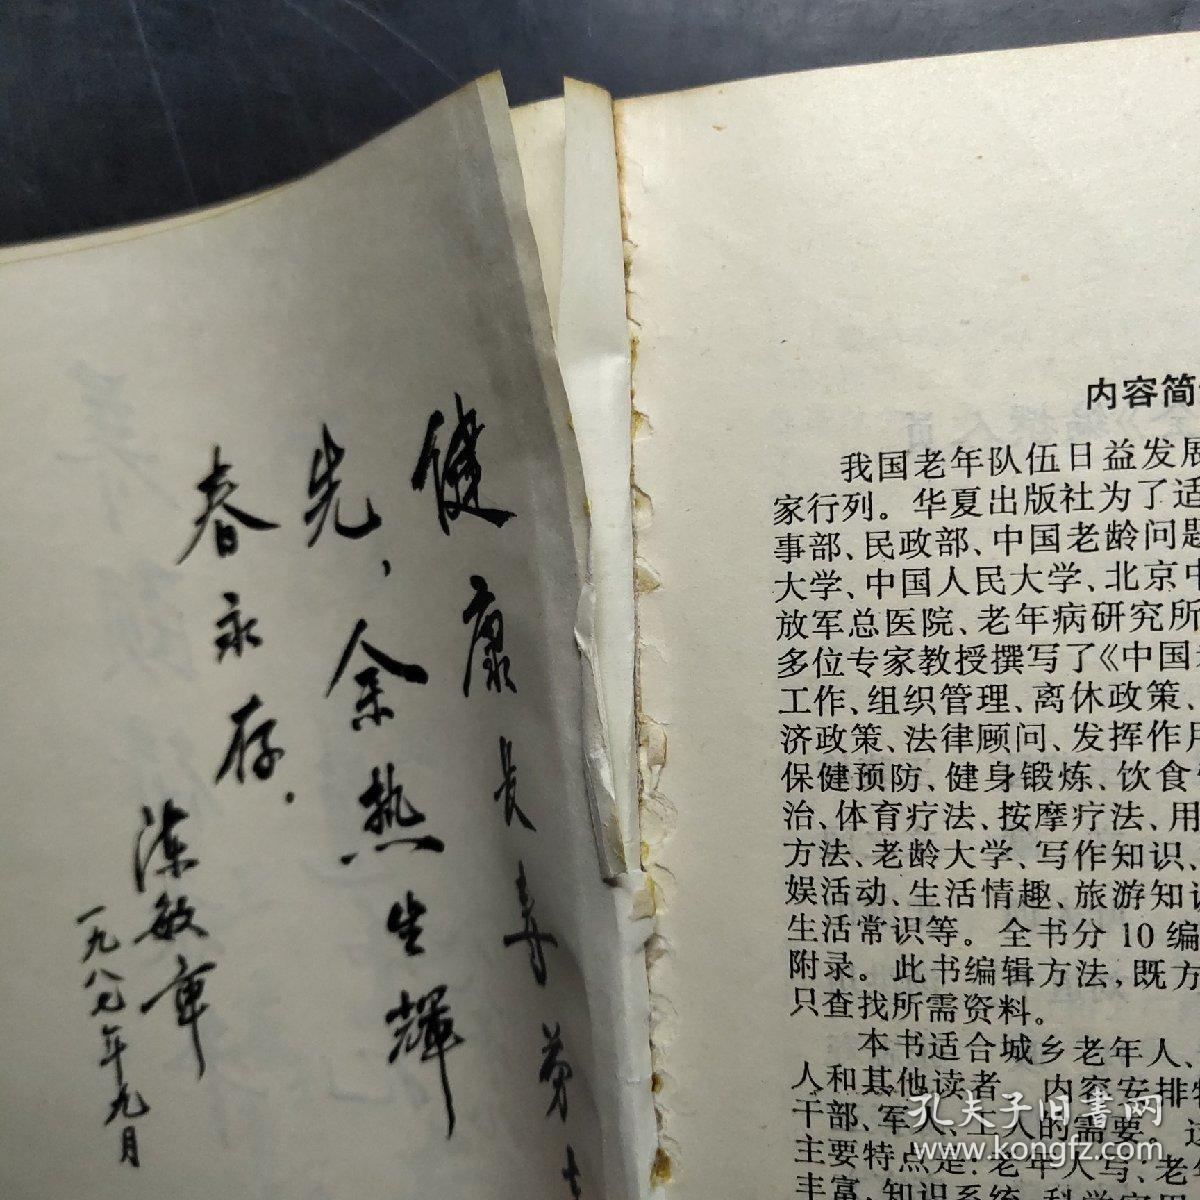 健康长寿
先,余热生辉
春永存.
陈敏章
一九八七年九月
内容简
我国老年队伍日益发展
家行列。华夏出版社为了适
事部、民政部、中国老龄问题
大学、中国人民大学、北京中
放军总医院、老年病研究所
多位专家教授撰写了《中国
工作、组织管理、离休政策、
济政策、法律顾问、发挥作用
保健预防、健身锻炼、饮食
治、体育疗法、按摩疗法、用
方法、老龄大学、写作知识、
娱活动、生活情趣、旅游知识
生活常识等。全书分10编
附录。此书编辑方法,既方
只查找所需资料。
本书适合城乡老年人、
人和其他读者。内容安排
干部、军人、工人的需要。
主要特点是:老年人写;老年
丰富,知识系统
孔夫子旧书网
www.kongfz.com